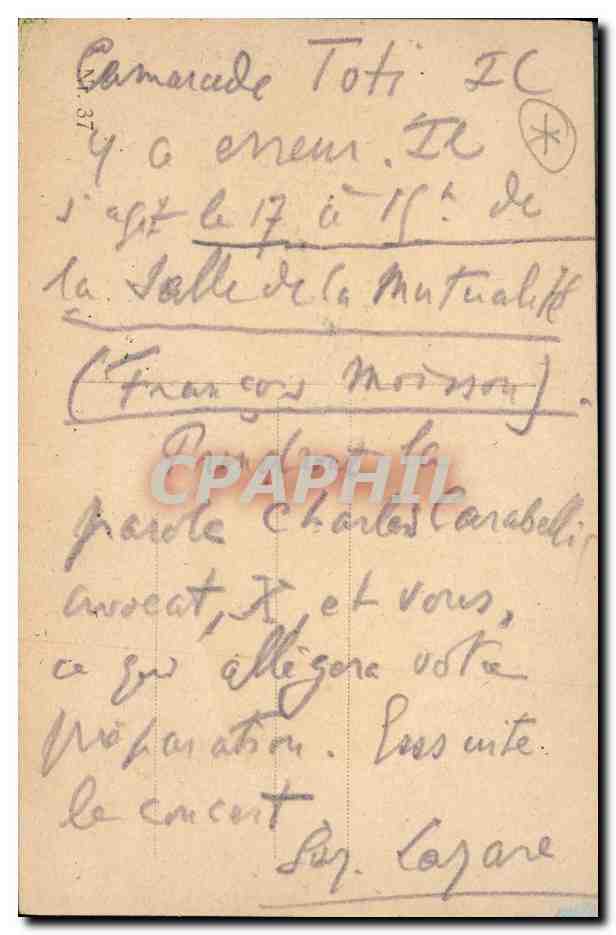 Camarade Toti Il
Nr. 37
y a erreur. Il
s'agit le 17 à 15h de
la Salle de la Mutualité
(François Moisson).
Prendront la
CPAPHIL
parole Charles Carabelli,
avocat, X, et vous,
ce qui allègera votre
préparation. Ensuite
le concert
Lazare